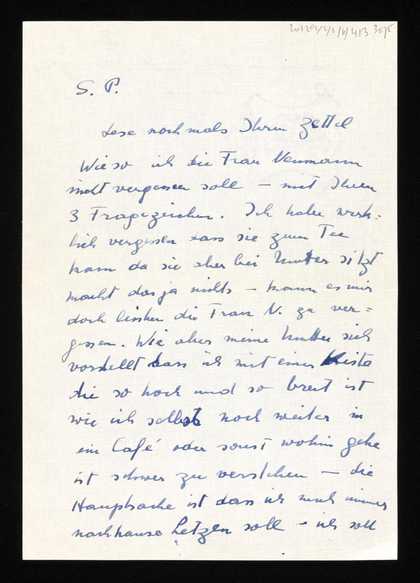 S. P.
Lese nochmals Ihren Zettel
Wieso ich die Frau Neumann
nicht vergessen soll – mit Ihren
3 Fragezeichen. Ich habe wirk-
lich vergessen dass sie zum Tee
kam da sie aber bei Mutter sitzt
macht das ja nichts – kann es mir
doch leisten die Frau N. zu ver-
gessen. Wie aber meine Mutter sich
vorstellt dass ich mit einer Kiste
die so hoch und so breit ist
wie ich selbst noch weiter in
ein Café oder sonst wohin gehe
ist schwer zu verstehen – die
Hauptsache ist dass ich mich immer
nachhause hetzen soll – ich soll